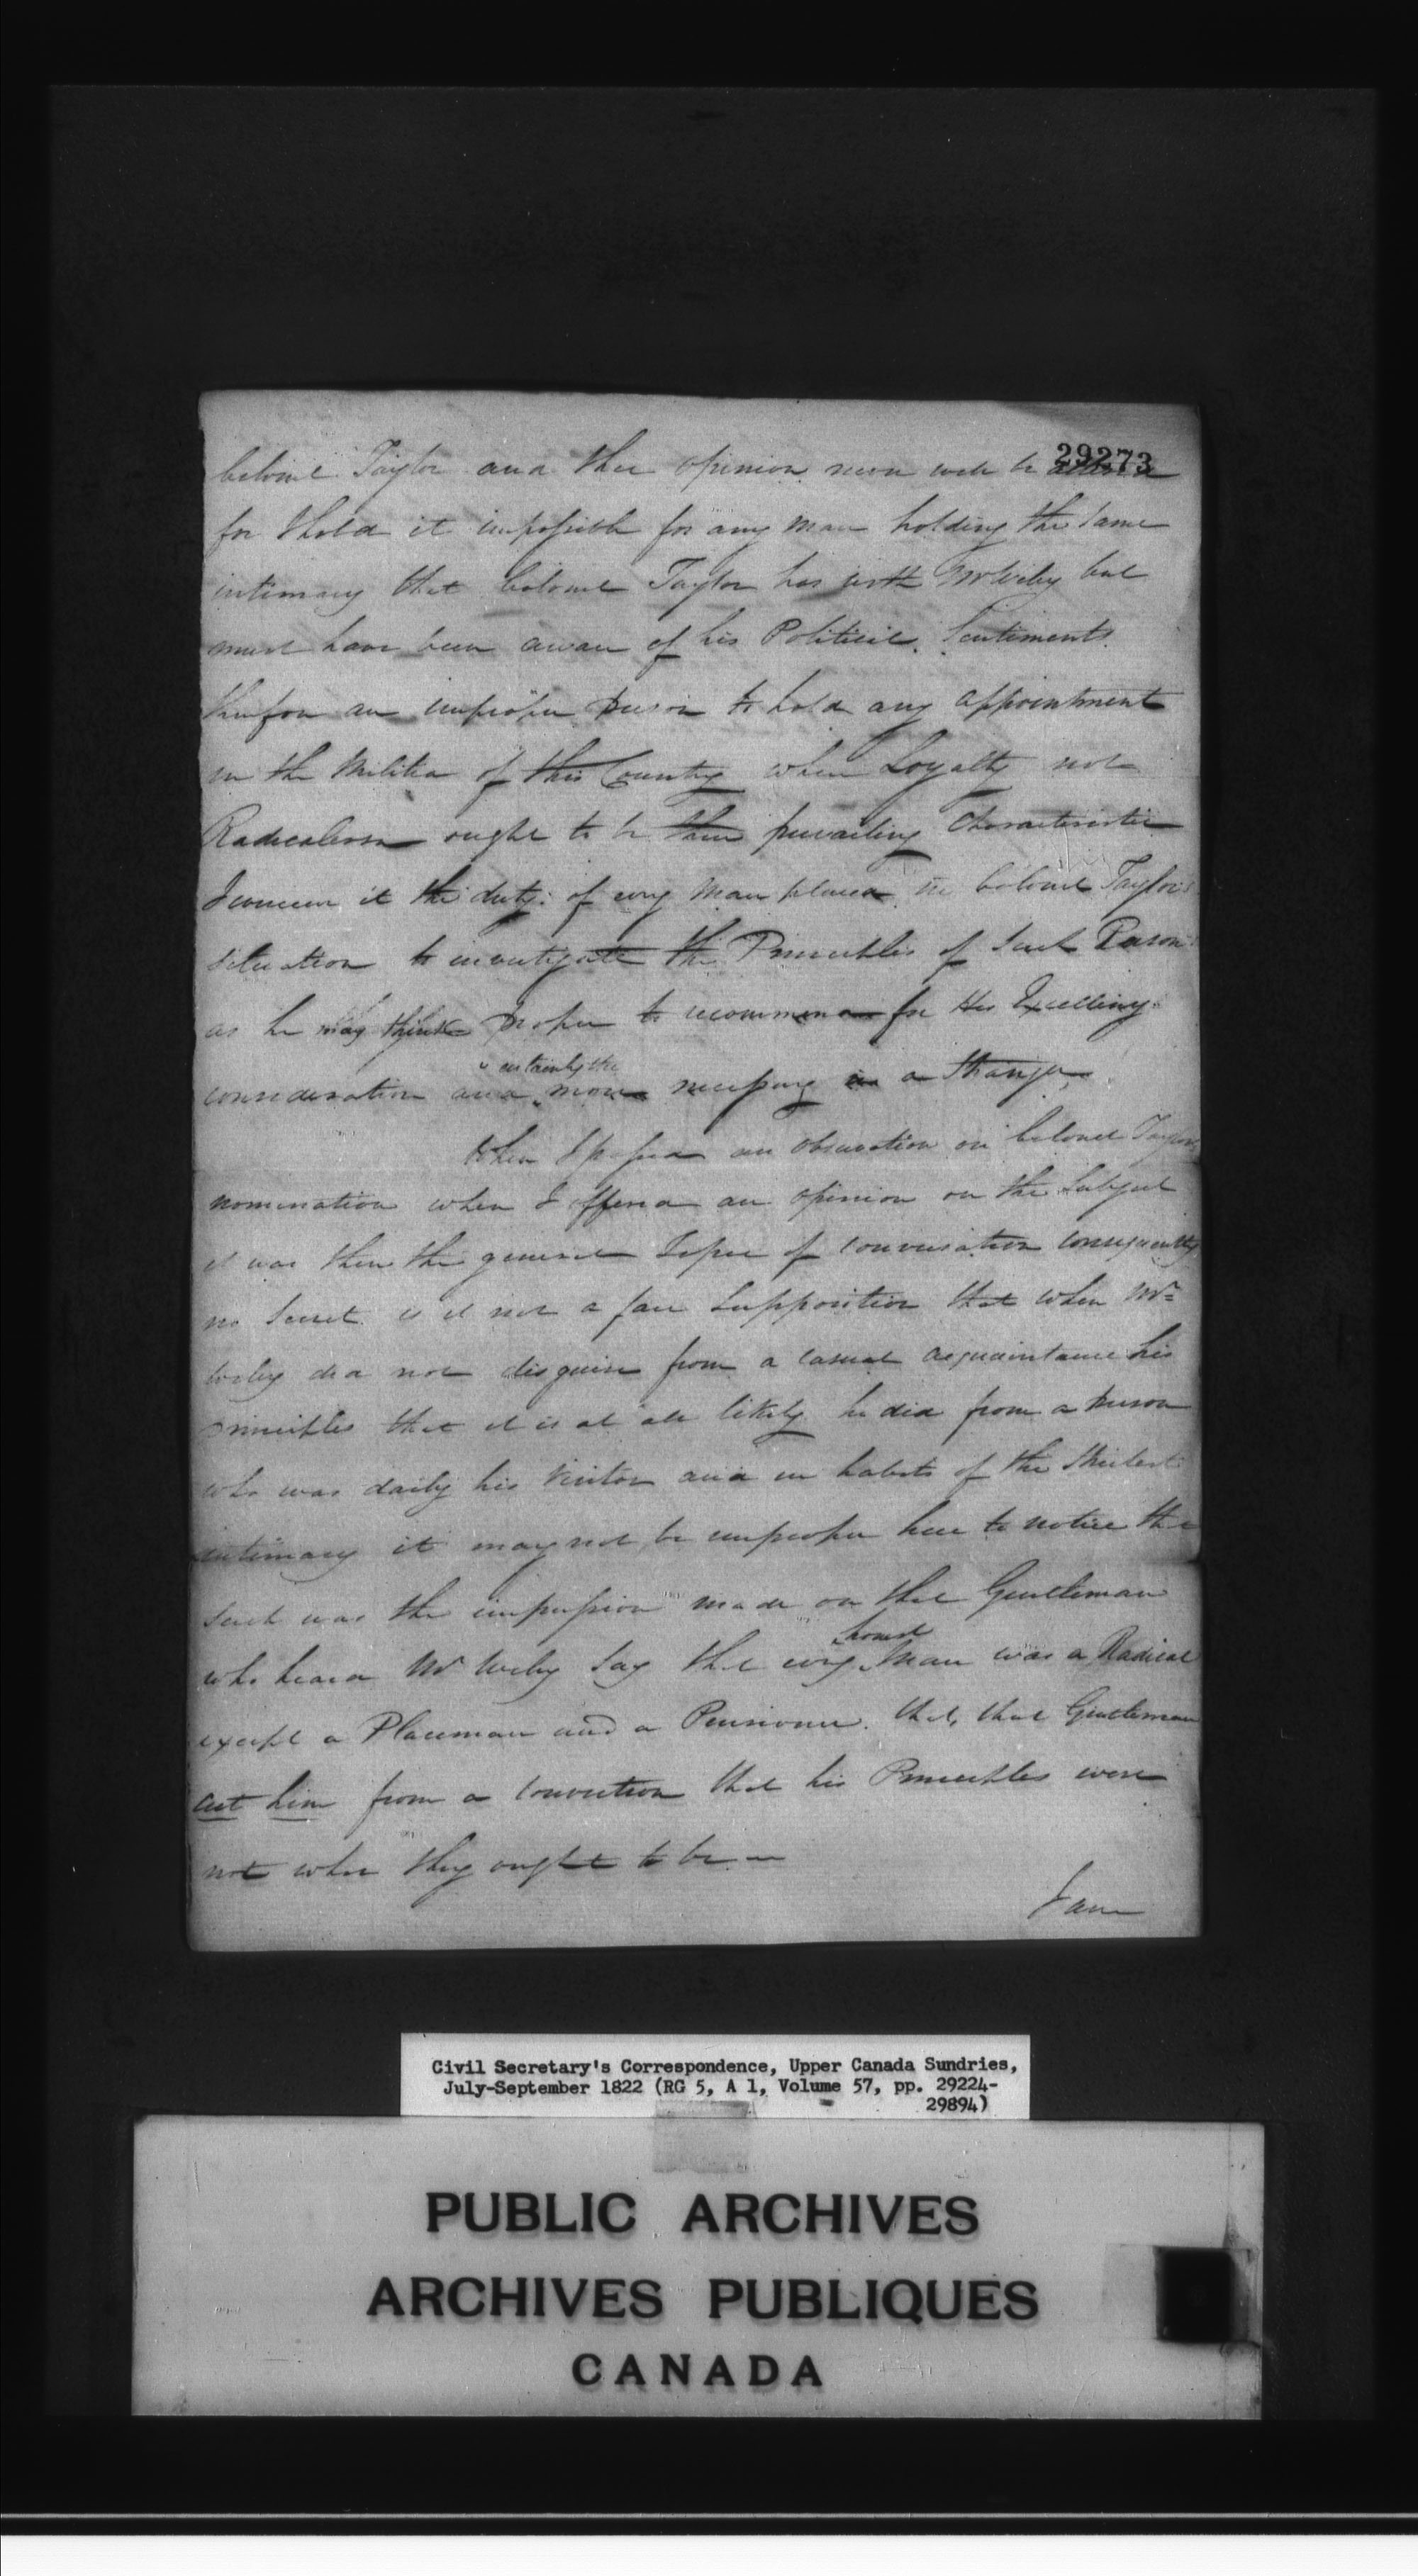 29273
Colonel Taylor and that opinion never will be
for I hold it impossible for any Man holding the Same
intimacy that Colonel Taylor has with Mr but
must have been aware of his Political Sentiments.
therefore an improper person to hold any appointment
in the Militia of this Country when Loyalty not
Radicalism ought to be their prevailing Characteristic
I conceive it the duty of every Man placed in Colonel Taylors
situation to investigate the Principles of Such Persons
as he may think proper to recommend for His Excellency's
certainly the
consideration and more necessary in a Stranger.
When I passed an observation on Colonel Taylors
nomination when I offered an opinion on the Subject
it was then the general Topic of conversation consequently
no Secret. is it not a fair Supposition that when Mr
did not disguise from a casual acquaintance his
principles that it is at all likely he did from a person
who was daily his Visitor and in habits of the Strictest
intimacy it may not be improper here to notice that
such was the impression made on that Gentleman
honest
who heard Mr say that every Man was a Radical
except a Placeman and a Pensioner. that, that Gentleman
cut him from a conviction that his Principles were
not what they ought to be —
I am
Civil Secretary's Correspondence, Upper Canada Sundries,
July-September 1822 (RG 5, A 1, Volume 57, pp. 29224-
29894)
PUBLIC ARCHIVES
ARCHIVES PUBLIQUES
CANADA